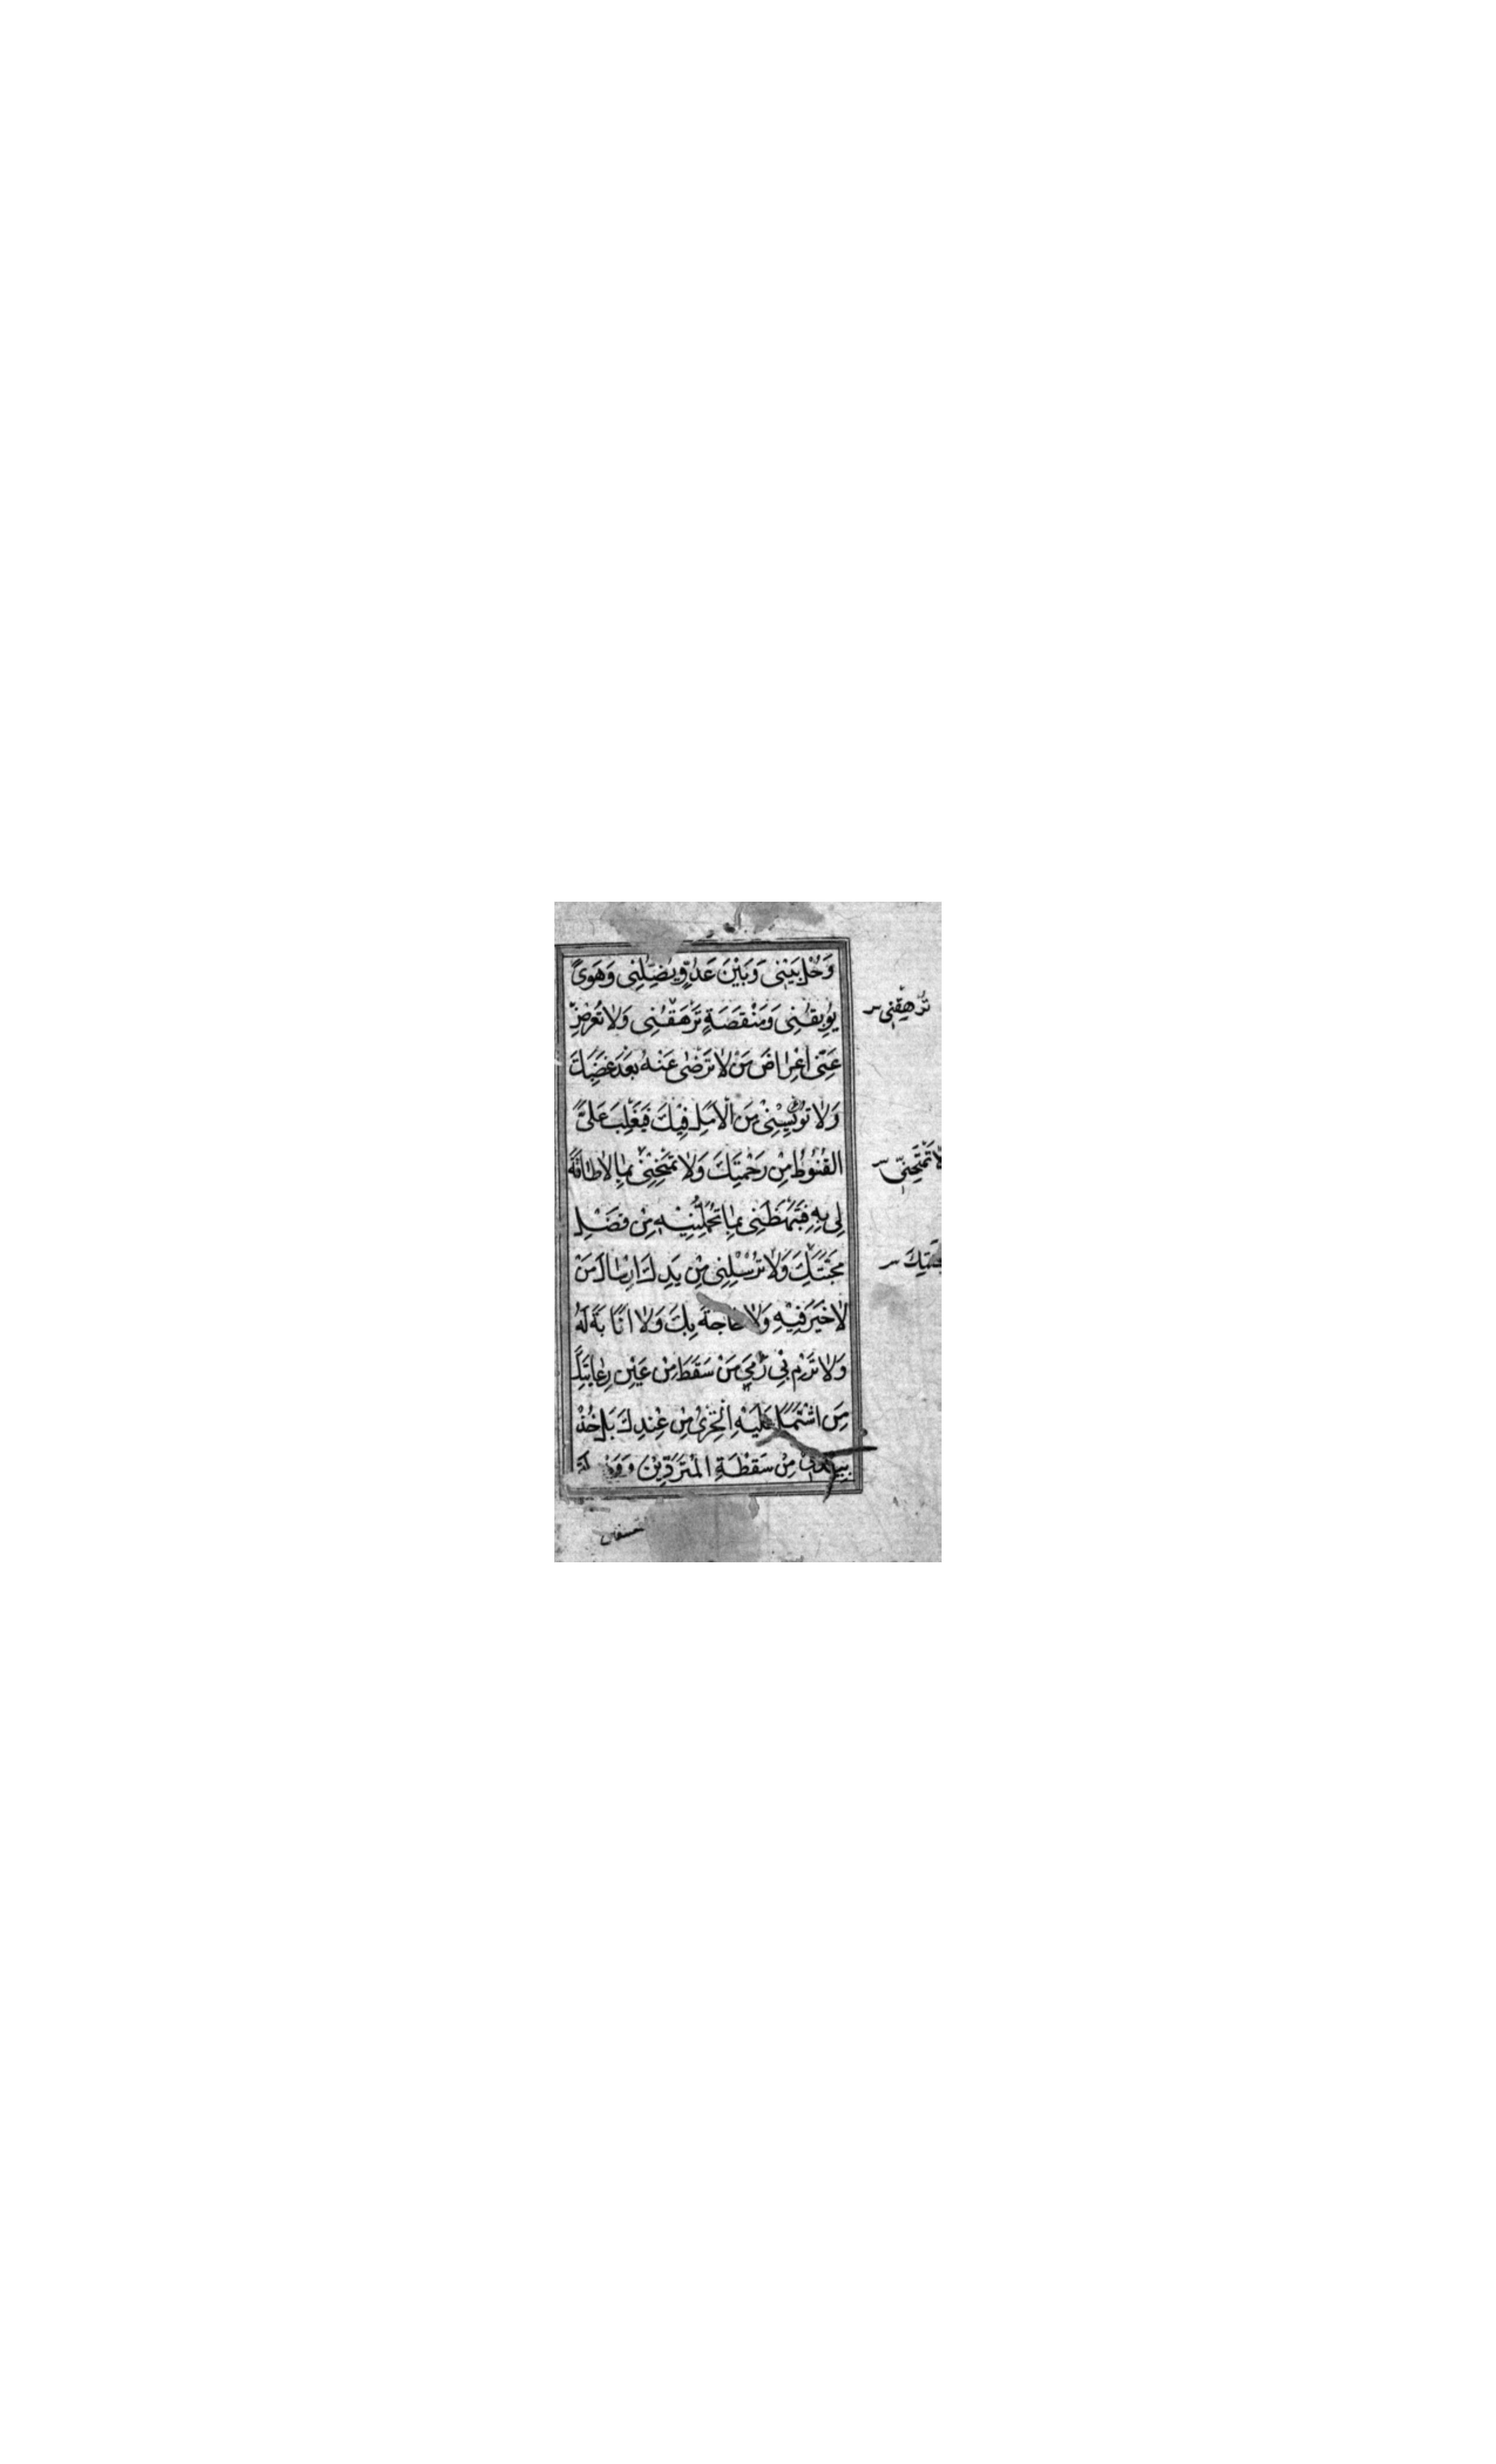 وَحُلْ بَيْنِي وَبَيْنَ عَدُوٍّ يُضِلُّنِي وَهَوىً
يُوبِقُنِي وَمَنْقَصَةٍ تَرْهَقُنِي وَلَا تُعْرِضْ
عَنِّي اِعْرَاضَ مَنْ لَا تَرْضَى عَنْهُ بَعْدَ غَضَبِكَ
وَلَا تُؤْيِسْنِي مِنَ الْأَمَلِ فِيكَ فَيَغْلِبَ عَلَيَّ
الْقُنُوطُ مِنْ رَحْمَتِكَ وَلَا تَمْنِحْنِي بِمَا لَا طَاقَةَ
لِي بِهِ فَتَبْهَظَنِي مِمَّا تُحَمِّلُنِيهِ مِنْ فَضْلِ
مَحَبَّتِكَ وَلَا تُرْسِلْنِي مِنْ يَدِكَ اِرْسَالَ مَنْ
لَا خَيْرَ فِيهِ وَلَا حَاجَةَ بِكَ وَلَا اِنَابَةَ لَهُ
وَلَا تَرْمِ بِي رَمْيَ مَنْ سَقَطَ مِنْ عَيْنِ رِعَايَتِكَ
مَنِ اشْتَمَلَ عَلَيْهِ الْخِزْيُ مِنْ عِنْدِكَ بَلْ خُذْ
بِيَدِي مِنْ سَقْطَةِ الْمُتَرَدِّينَ
تُرْهِقُنِي
لَا تَمْتَحِنِّي